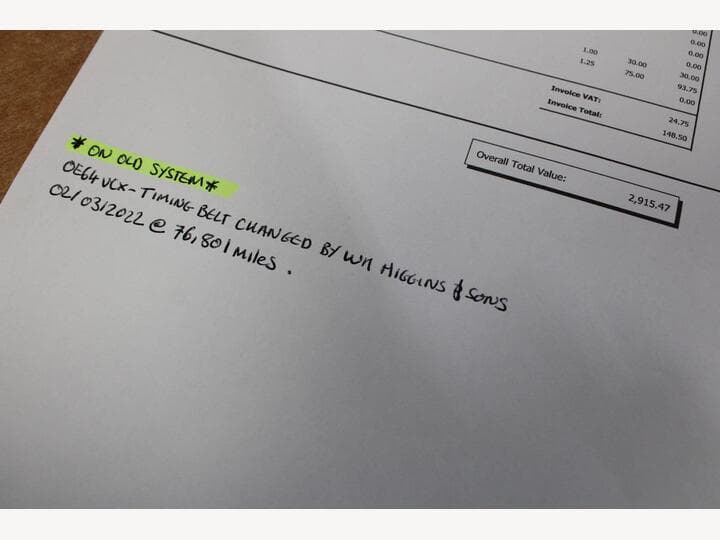 0.00
0.00
0.00
1.00 30.00 0.00
1.25 75.00 30.00
93.75
Invoice VAT: 0.00
Invoice Total: 24.75
148.50
Overall Total Value: 2,915.47
* ON OLD SYSTEM *
OE64 VCX - TIMING BELT CHANGED BY WM HIGGINS & SONS
02/03/2022 @ 76,801 MILES.